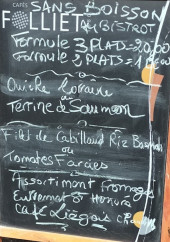 CAFÉS
FOLLIET
SANS BOISSON
BISTROT
Formule 3 PLATS
Formule 2 PLATS
Quiche Lorraine
ou
Terrine de Saumon
Filet de Cabillaud Riz Basmati
ou
Tomates Farcies
Assortiment Fromages
Entremet St Honoré
Café Liégeois